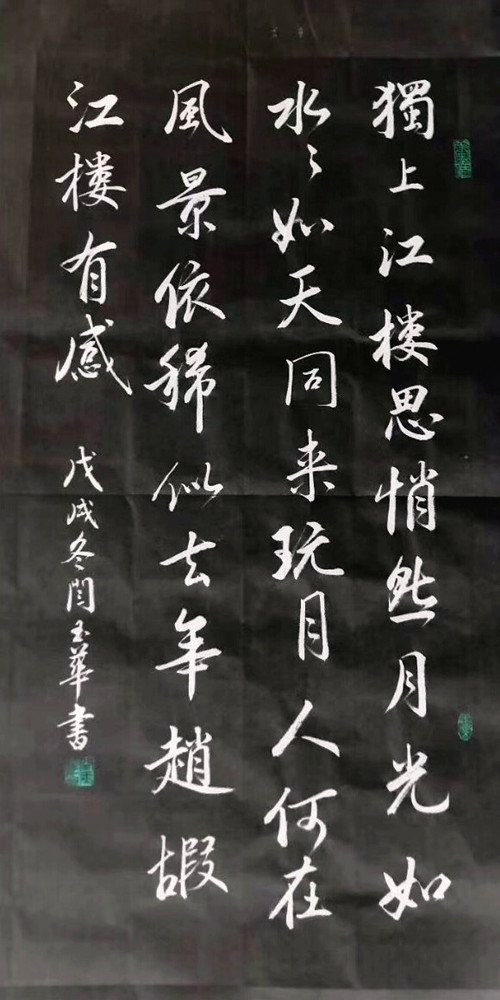 獨上江樓思悄然月光如
水〻如天同来玩月人何在
風景依稀似去年趙嘏
江樓有感
戊戌冬閆玉華書